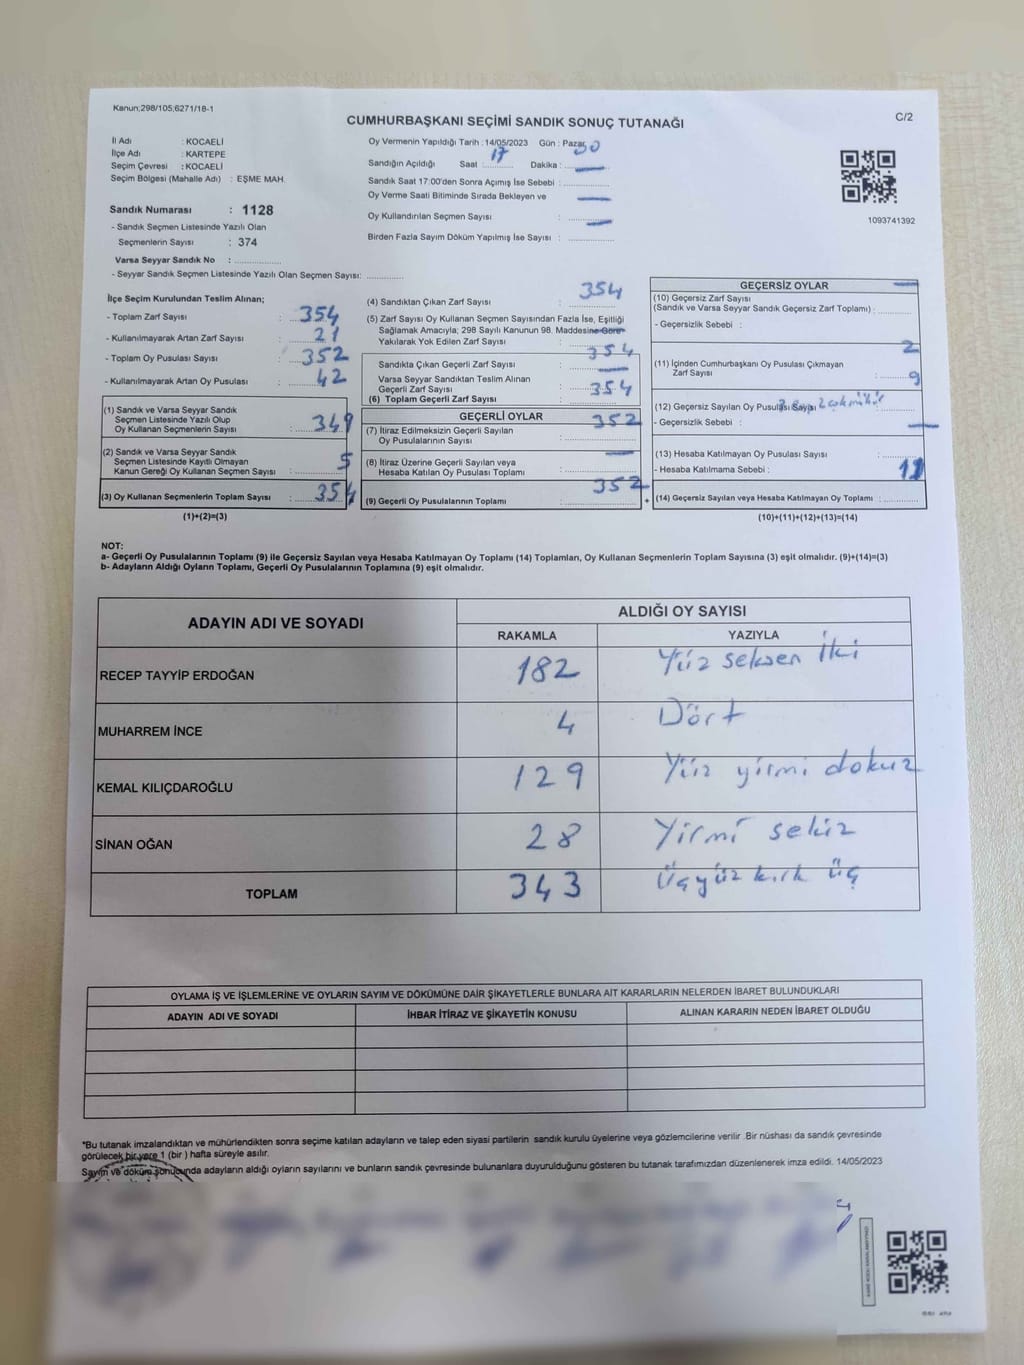 Kanun;298/105;6271/18-1
CUMHURBAŞKANI SEÇİMİ SANDIK SONUÇ TUTANAĞI
C/2
İl Adı : KOCAELİ
İlçe Adı : KARTEPE
Seçim Çevresi : KOCAELİ
Seçim Bölgesi (Mahalle Adı) : EŞME MAH.
Sandık Numarası : 1128
- Sandık Seçmen Listesinde Yazılı Olan
Seçmenlerin Sayısı : 374
Varsa Seyyar Sandık No :
- Seyyar Sandık Seçmen Listesinde Yazılı Olan Seçmen Sayısı:
Oy Vermenin Yapıldığı Tarih : 14/05/2023 Gün : Pazar
Sandığın Açıldığı Saat : 17 Dakika : 00
Sandık Saat 17:00'den Sonra Açımış İse Sebebi :
Oy Verme Saati Bitiminde Sırada Bekleyen ve
Oy Kullandırılan Seçmen Sayısı :
Birden Fazla Sayım Döküm Yapılmış İse Sayısı :
1093741392
İlçe Seçim Kurulundan Teslim Alınan;
- Toplam Zarf Sayısı : 354
- Kullanılmayarak Artan Zarf Sayısı : 21
- Toplam Oy Pusulası Sayısı : 352
- Kullanılmayarak Artan Oy Pusulası : 42
(1) Sandık ve Varsa Seyyar Sandık
Seçmen Listesinde Yazılı Olup
Oy Kullanan Seçmenlerin Sayısı : 349
(2) Sandık ve Varsa Seyyar Sandık
Seçmen Listesinde Kayıtlı Olmayan
Kanun Gereği Oy Kullanan Seçmen Sayısı : 5
(3) Oy Kullanan Seçmenlerin Toplam Sayısı : 354
(1)+(2)=(3)
(4) Sandıktan Çıkan Zarf Sayısı : 354
(5) Zarf Sayısı Oy Kullanan Seçmen Sayısından Fazla İse, Eşitliği
Sağlamak Amacıyla; 298 Sayılı Kanunun 98. Maddesine Göre
Yakılarak Yok Edilen Zarf Sayısı :
Sandıkta Çıkan Geçerli Zarf Sayısı : 354
Varsa Seyyar Sandıktan Teslim Alınan
Geçerli Zarf Sayısı :
(6) Toplam Geçerli Zarf Sayısı : 354
GEÇERLİ OYLAR
(7) İtiraz Edilmeksizin Geçerli Sayılan
Oy Pusulalarının Sayısı : 352
(8) İtiraz Üzerine Geçerli Sayılan veya
Hesaba Katılan Oy Pusulası Toplamı :
(9) Geçerli Oy Pusulalarının Toplamı : 352
GEÇERSİZ OYLAR
(10) Geçersiz Zarf Sayısı
(Sandık ve Varsa Seyyar Sandık Geçersiz Zarf Toplamı) :
- Geçersizlik Sebebi :
(11) İçinden Cumhurbaşkanı Oy Pusulası Çıkmayan
Zarf Sayısı : 2
(12) Geçersiz Sayılan Oy Pusulası Sayısı : 9
- Geçersizlik Sebebi :
(13) Hesaba Katılmayan Oy Pusulası Sayısı :
- Hesaba Katılmama Sebebi :
+ (14) Geçersiz Sayılan veya Hesaba Katılmayan Oy Toplamı : 11
(10)+(11)+(12)+(13)=(14)
NOT:
a- Geçerli Oy Pusulalarının Toplamı (9) ile Geçersiz Sayılan veya Hesaba Katılmayan Oy Toplamı (14) Toplamları, Oy Kullanan Seçmenlerin Toplam Sayısına (3) eşit olmalıdır. (9)+(14)=(3)
b- Adayların Aldığı Oyların Toplamı, Geçerli Oy Pusulalarının Toplamına (9) eşit olmalıdır.
ADAYIN ADI VE SOYADI
ALDIĞI OY SAYISI
RAKAMLA YAZIYLA
RECEP TAYYİP ERDOĞAN 182 Yüz seksen İki
MUHARREM İNCE 4 Dört
KEMAL KILIÇDAROĞLU 129 Yüz yirmi dokuz
SİNAN OĞAN 28 Yirmi sekiz
TOPLAM 343 Üçyüz kırk üç
OYLAMA İŞ VE İŞLEMLERİNE VE OYLARIN SAYIM VE DÖKÜMÜNE DAİR ŞİKAYETLERLE BUNLARA AİT KARARLARIN NELERDEN İBARET BULUNDUKLARI
ADAYIN ADI VE SOYADI İHBAR İTİRAZ VE ŞİKAYETİN KONUSU ALINAN KARARIN NEDEN İBARET OLDUĞU
*Bu tutanak imzalandıktan ve mühürlendikten sonra seçime katılan adayların ve talep eden siyasi partilerin sandık kurulu üyelerine veya gözlemcilerine verilir .Bir nüshası da sandık çevresinde
görülecek bir yere 1 (bir ) hafta süreyle asılır.
Sayım ve döküm sonucunda adayların aldığı oyların sayılarını ve bunların sandık çevresinde bulunanlara duyurulduğunu gösteren bu tutanak tarafımızdan düzenlenerek imza edildi. 14/05/2023